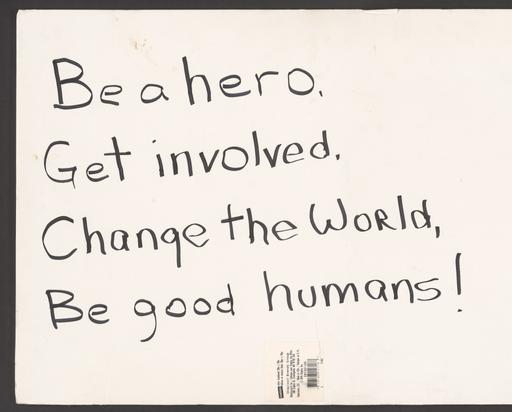 Be a hero.
Get involved.
Change the World,
Be good humans!